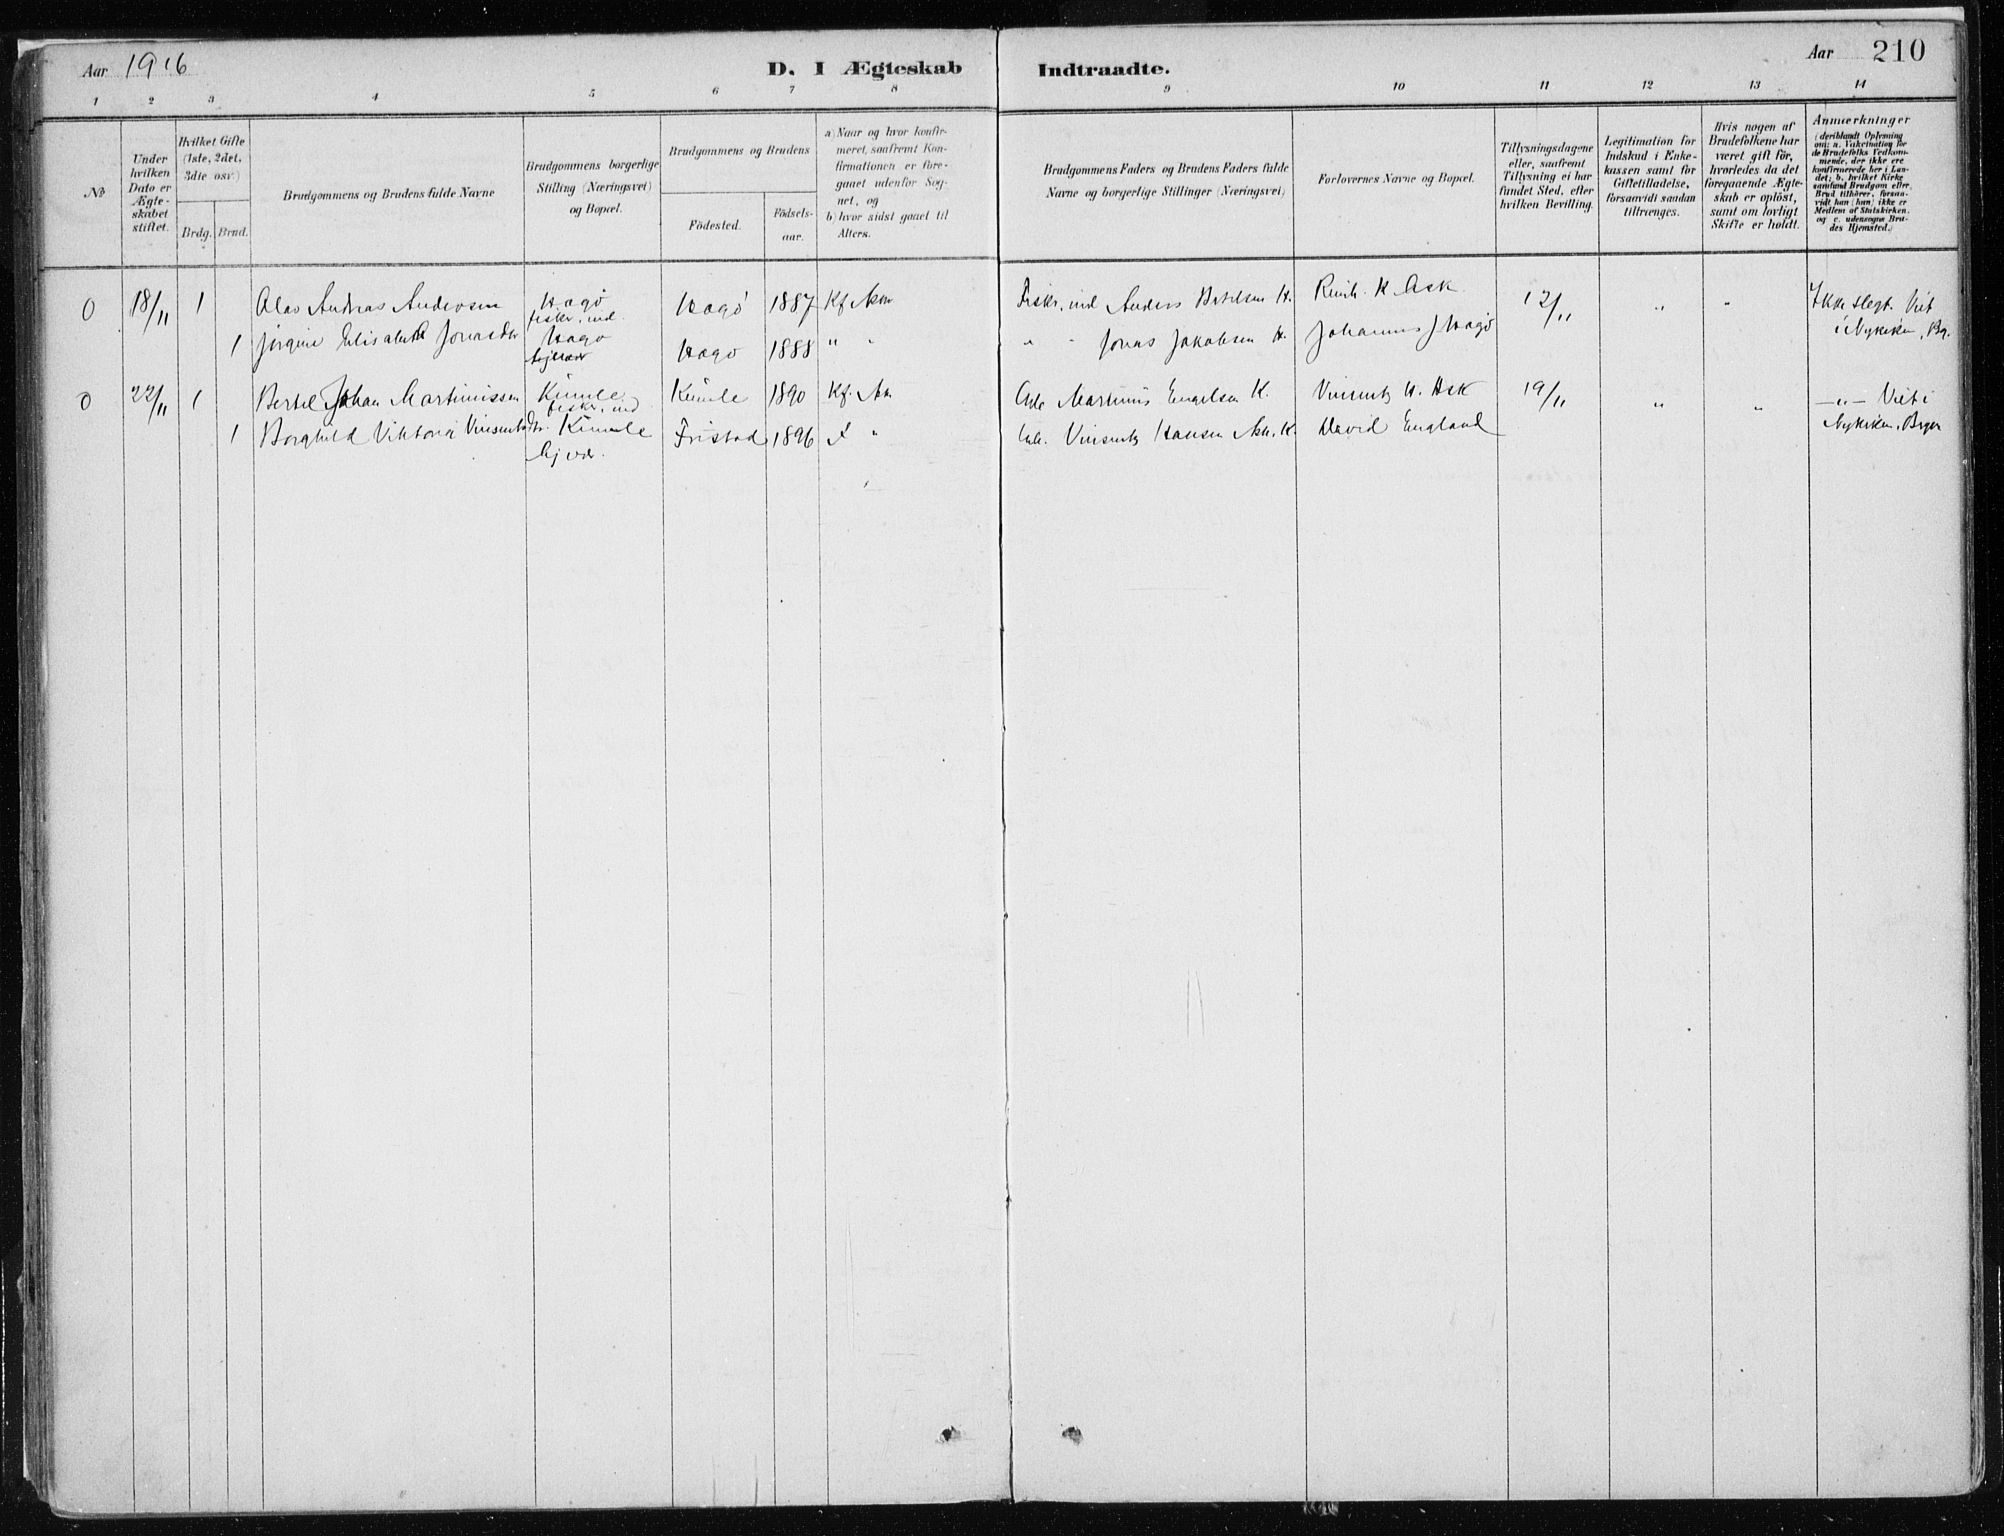 Aar 1916 D. I Ægteskab Indtraadte. Aar 210
1 2 3 4 5 6 7 8 9 10 11 12 13 14
№
Under hvilken Dato er Ægte-skabet stiftet.
Hvilket Gifte (1ste, 2det, 3die osv.)
Brdg. Brud.
Brudgommens og Brudens fulde Navne
Brudgommens borgerlige Stilling (Næringsvei) og Bopæl.
Brudgommens og Brudens
Födested. Födsels-aar.
a) Naar og hvor konfir-meret, saafremt Kon-firmationen er fore-gaaet udenfor Sog-net, og
b) hvor sidst gaaet til Alters.
Brudgommens Faders og Brudens Faders fulde Navne og borgerlige Stillinger (Næringsvei)
Forlovernes Navne og Bopæl.
Tillysningsdagene eller, saafremt Tillysning ei har fundet Sted, efter hvilken Bevilling.
Legitimation for Indskud i Enke-kassen samt for Giftetilladelse, forsaavidt saadan tiltrænges.
Hvis nogen af Brudefolkene har været gift för, hvorledes da det foregaaende Ægte-skab er oplöst, samt om lovligt Skifte er holdt.
Anmærkninger
(deriblandt Oplysning om: a. Vakcination for de Brudefolks Vedkom-mende, der ikke ere konfirmerede her i Lan-det; b. hvilket Kirke samfund Brudgom eller Brud tilhörer, forsaa-vidt han (hun) ikke er Medlem af Statskirken. og c. udensogns Bru-des Hjemsted.)
0 18/11 1 Olav Andreas Andersen Hagø Hagø 1887 Kf. Ask Fiskr, ind Anders Bertelsen H. K Ask 12/11 " " Ikke slegt. Viet
fiskr, ind.
1 Jørgine Elisabeth Jonasdtr Hagø Hagø 1888 " " " " Jonas Jakobsen H. Johannes J Hagø i Nykirken, Bg.
0 22/11 1 Bertel Johan Martinussen Kumle Kumle 1890 Kf. Ask Martinus Engelsen K. Vinsents H. Ask 19/11 " " —"— Viet i
fiskr, ind
1 Borghild Viktoria Vinsentsdtr. Kumle Fristad 1896 " Vinsents Hansen Ask. K. David England Nykirken, Bergen